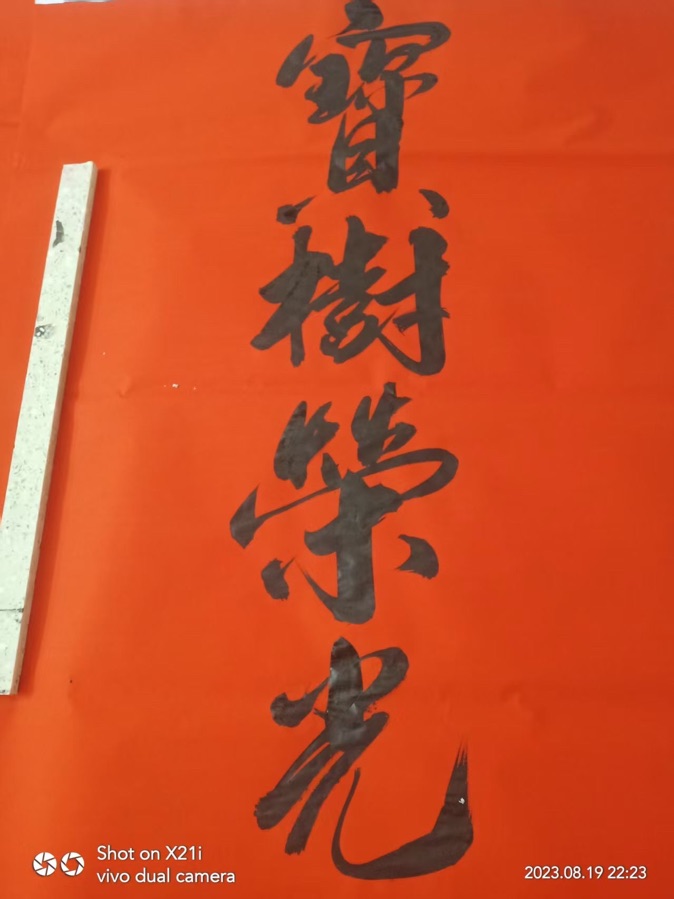 寶樹榮光
Shot on X21i
vivo dual camera
2023.08.19 22:23